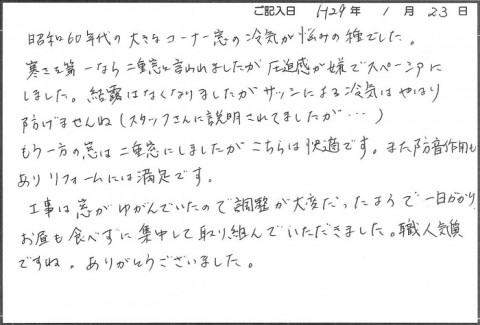 ご記入日 H29年 1月 23日
昭和60年代の大きなコーナー窓の冷気が悩みの種でした。
寒さを第一なら二重窓と言われましたが圧迫感が嫌でスペーシアに
しました。結露はなくなりましたがサッシによる冷気はやはり
防げませんね(スタッフさんに説明されてましたが…)
もう一方の窓は二重窓にしましたがこちらは快適です。また防音作用も
ありリフォームには満足です。
工事は窓がゆがんでいたので調整が大変だったようで一日がかり、
お昼も食べずに集中して取り組んでいただきました。職人気質
ですね。ありがとうございました。